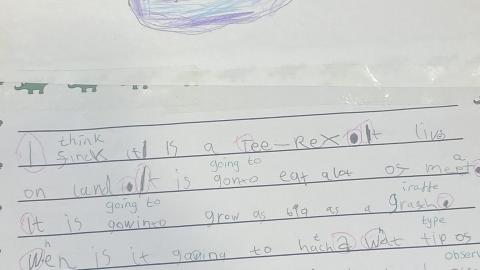 think
I finck itl is a Tee-Rex. It live
going to a
on land. It is gonto eat alot os meet.
going to iraffe
It is gowinto grow as big as a grash.
h t h type
Wen is it gowing to hach? Wat tip os
observ